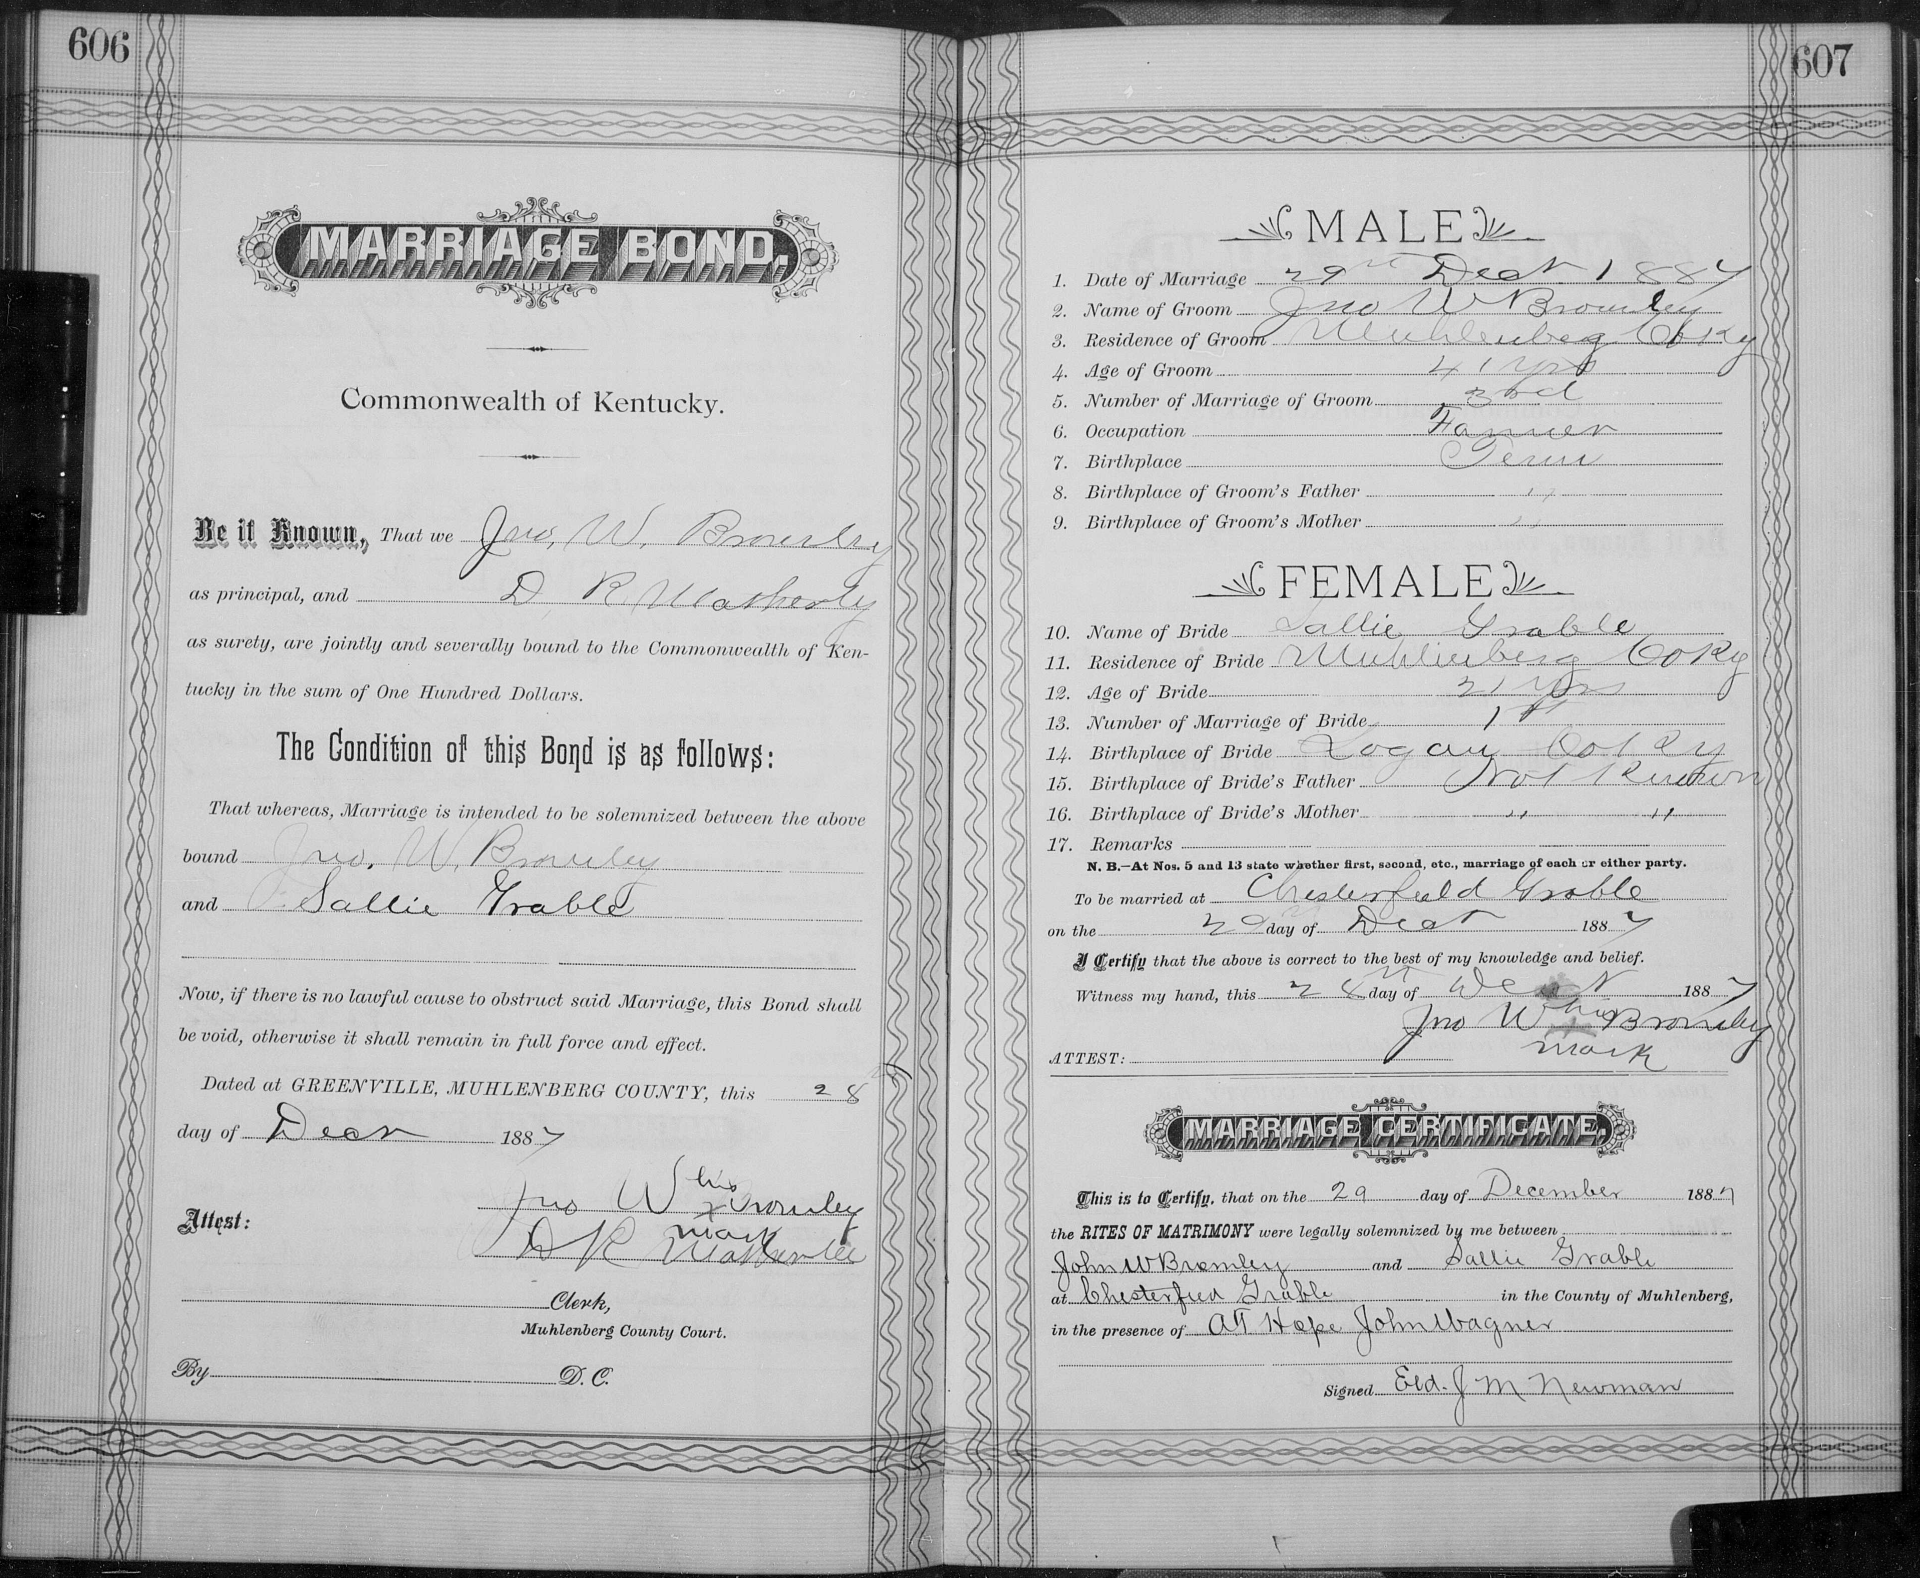 606
MARRIAGE BOND.
Commonwealth of Kentucky.
Be it Known, That we Jno. W. Bromley
as principal, and D R Weatherly
as surety, are jointly and severally bound to the Commonwealth of Ken-
tucky in the sum of One Hundred Dollars.
The Condition of this Bond is as follows:
That whereas, Marriage is intended to be solemnized between the above
bound Jno. W. Bromley
and Sallie Grable
Now, if there is no lawful cause to obstruct said Marriage, this Bond shall
be void, otherwise it shall remain in full force and effect.
Dated at GREENVILLE, MUHLENBERG COUNTY, this 28th
day of Decr 1887
Jno W his x Bromley
mark
Attest:
D R
Clerk,
Muhlenberg County Court.
By D. C.
607
MALE
1. Date of Marriage 29th Decr 1887
2. Name of Groom Jno W Bromley
3. Residence of Groom Muhlenberg Co Ky
4. Age of Groom 41 yrs
5. Number of Marriage of Groom 3rd
6. Occupation Farmer
7. Birthplace Tenn
8. Birthplace of Groom's Father " "
9. Birthplace of Groom's Mother " "
FEMALE
10. Name of Bride Sallie Grable
11. Residence of Bride Muhlenberg Co Ky
12. Age of Bride 21 yrs
13. Number of Marriage of Bride 1st
14. Birthplace of Bride Logan Co Ky
15. Birthplace of Bride's Father Not Known
16. Birthplace of Bride's Mother " "
17. Remarks
N. B.—At Nos. 5 and 13 state whether first, second, etc., marriage of each or either party.
To be married at Chesterfield Grable
on the 29th day of Decr 1887
I Certify that the above is correct to the best of my knowledge and belief.
Witness my hand, this 28th day of Decr 1887
Jno W his x Bromley
ATTEST: mark
MARRIAGE CERTIFICATE.
This is to Certify, that on the 29 day of December 1887
the RITES OF MATRIMONY were legally solemnized by me between
John W Bromley and Sallie Grable
at Grable in the County of Muhlenberg,
in the presence of Hope John Wagner
Signed Eld. J M Newman